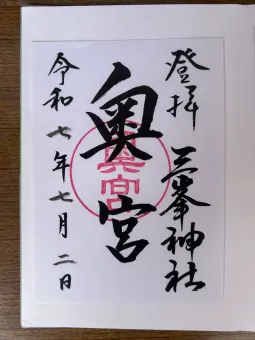 登拝
三峯神社
奥宮
令和七年七月二日